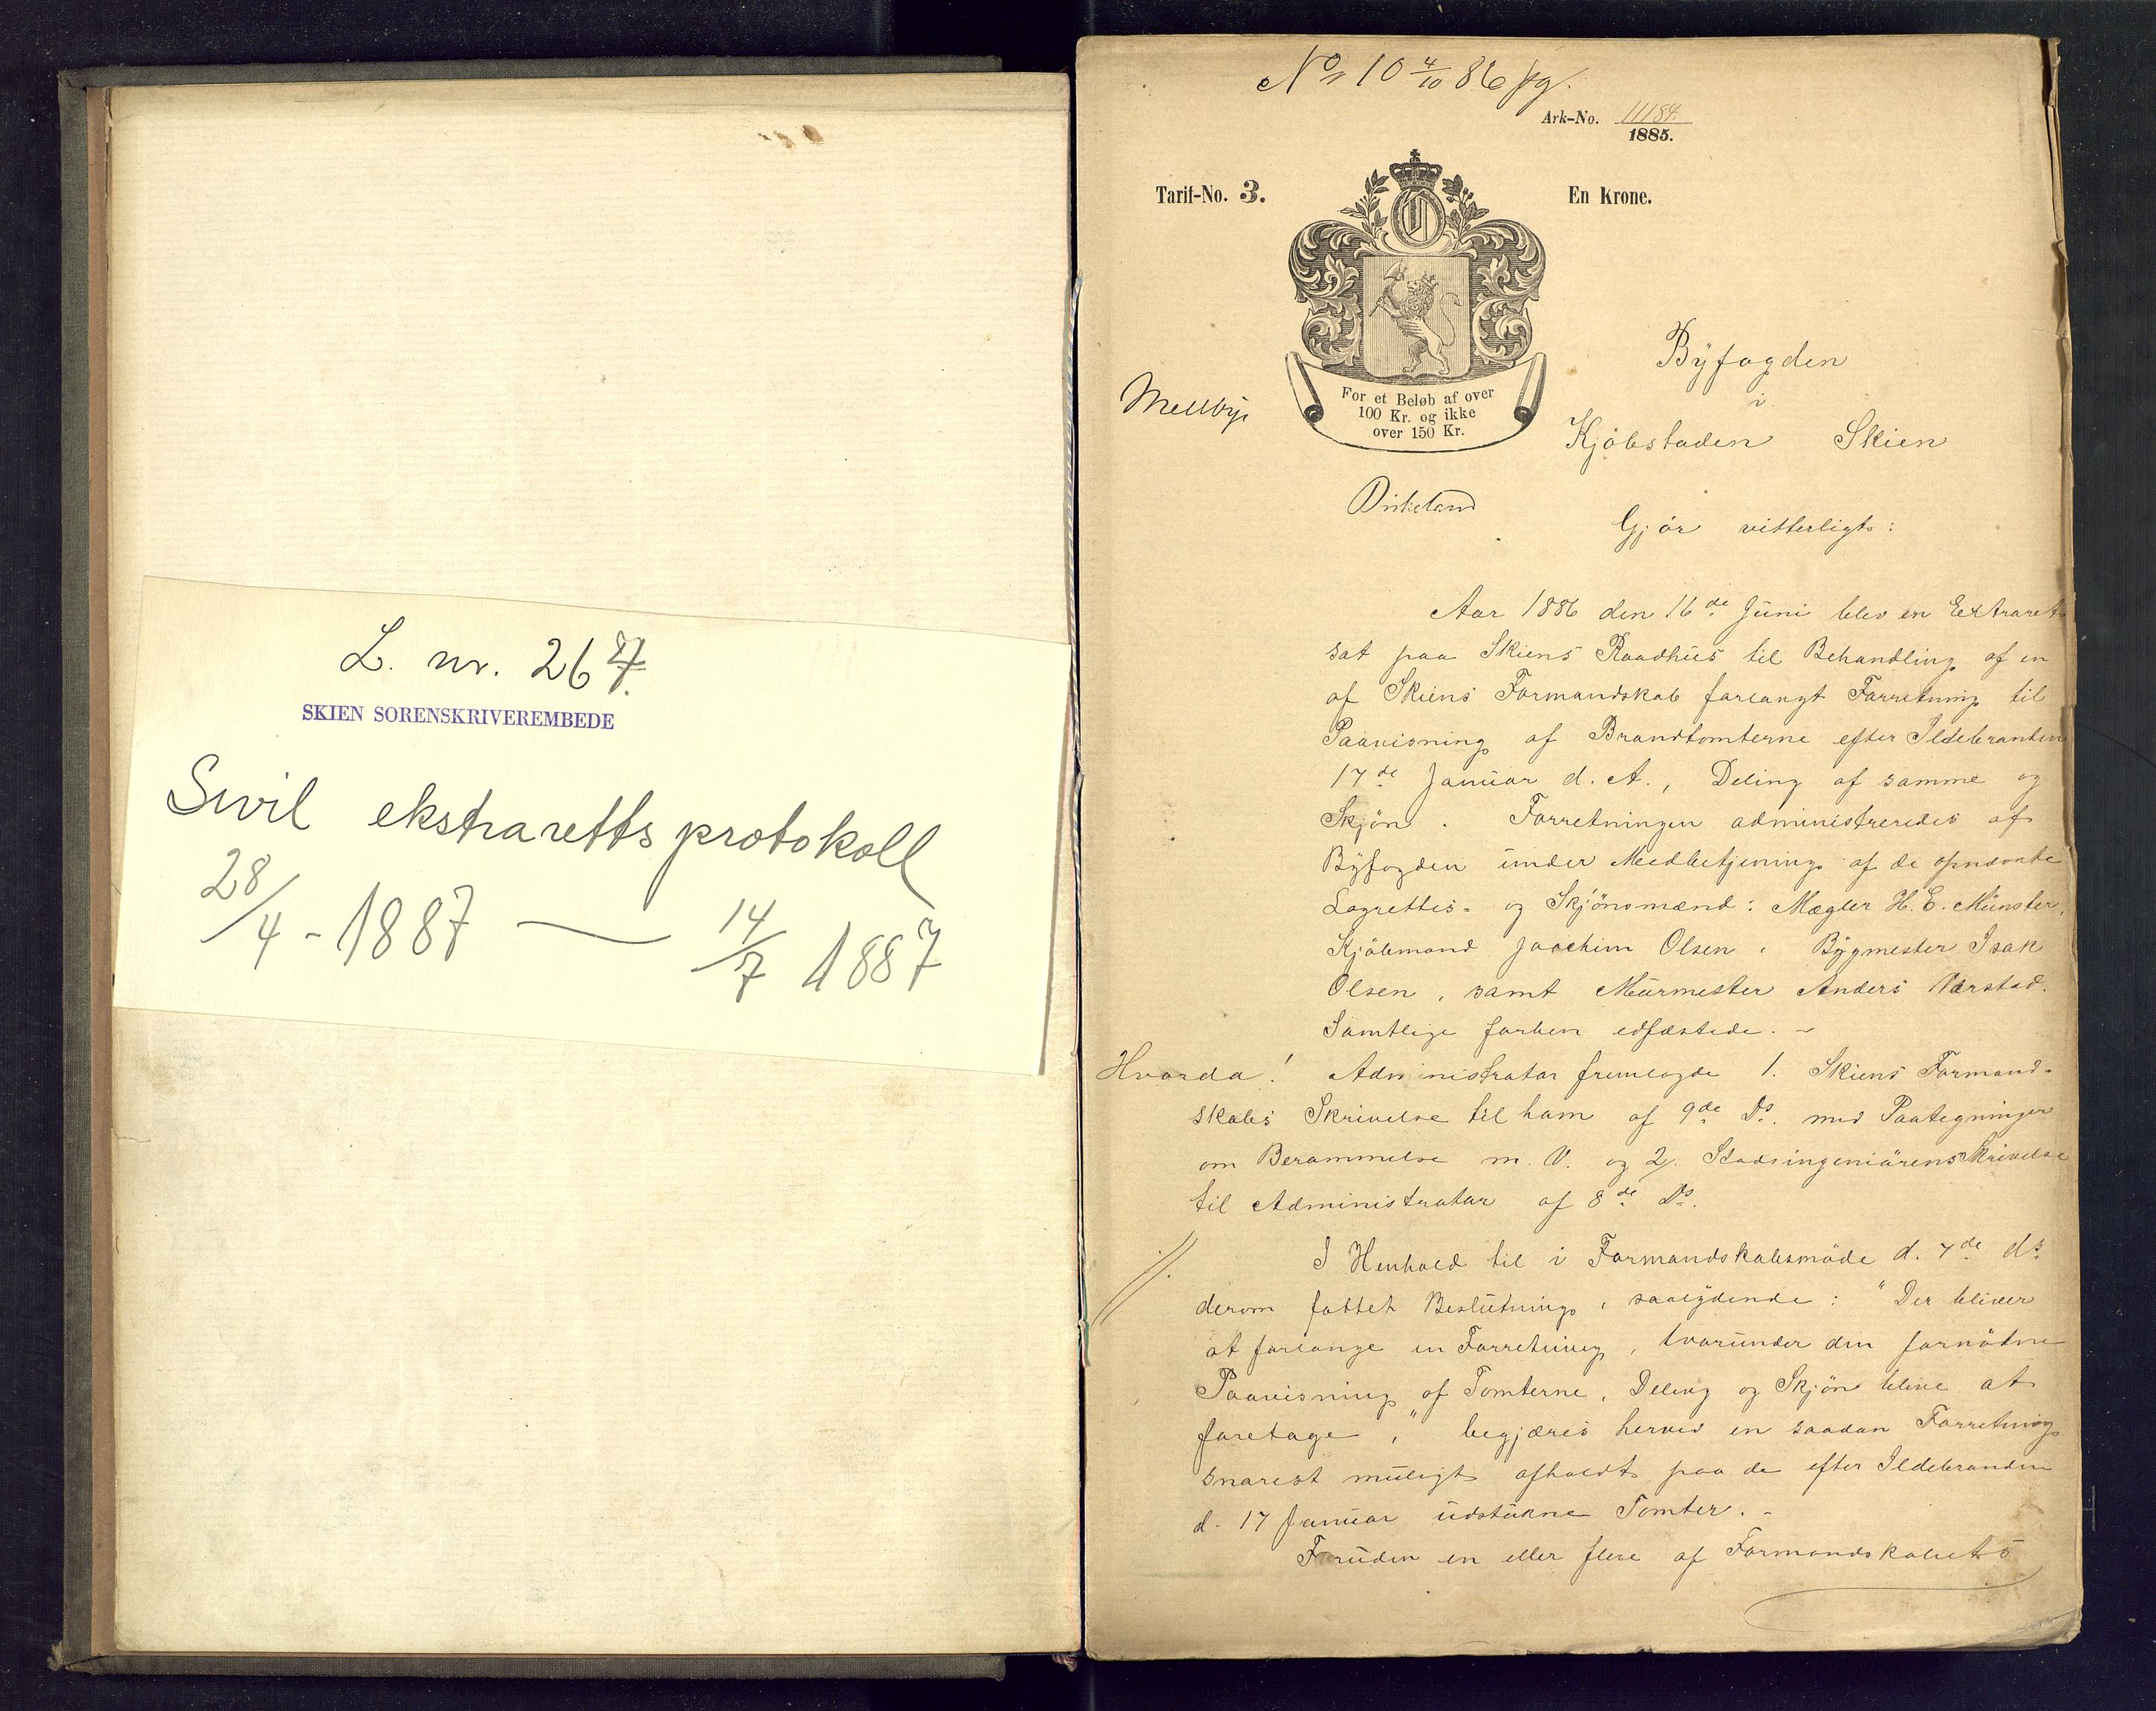 L. nr. 267.
SKIEN SORENSKRIVEREMBEDE
Sivil ekstrarettsprotokoll
28/4 - 1887 — 14/7 1887
No 10 4/10 86
Ark-No. 11184.
1885.
Tarif-No. 3.
En Krone.
For et Beløb af over
100 Kr. og ikke
over 150 Kr.
Mellbye
Byfogden
i
Kjöbstaden Skien
Gjör vitterligt:
Aar 1886 den 16de Juni blev en Extraret
sat paa Skiens Raadhus til Behandling af en
af Skiens Formandskab forlangt Forretning til
Paavisning af Brandtomterne efter Ildebranden
17de Januar d. A., Deling af samme og
Skjön. Forretningen administreredes af
Byfogden under Medbetjening af de opnævnte
Lagrettes- og Skjönsmænd: Mægler H. E. Münster,
Kjöbmand Joachim Olsen, Bygmester Isak
Olsen, samt Murmester Anders Værstad.
Samtlige forhen edfæstede. -
Hvorda! Administrator fremlagde 1. Skiens Formand-
skabs Skrivelse til ham af 9de Ds. med Paategninger
om Berammelse m. V. og 2. Stadsingeniörens Skrivelse
til Administrator af 8de Ds.
1/.
I Henhold til i Formandskabsmöde d. 7de ds
derom fattet Beslutning, saalydende: "Der bliver
at forlange en Forretning, hvorunder den fornödne
Paavisning af Tomterne, Deling og Skjön blive at
foretage," begjæres herved en saadan Forretning
snarest muligt afholdt paa de efter Ildebranden
d. 17 Januar udstukne Tomter. -
Foruden en eller flere af Formandskabets